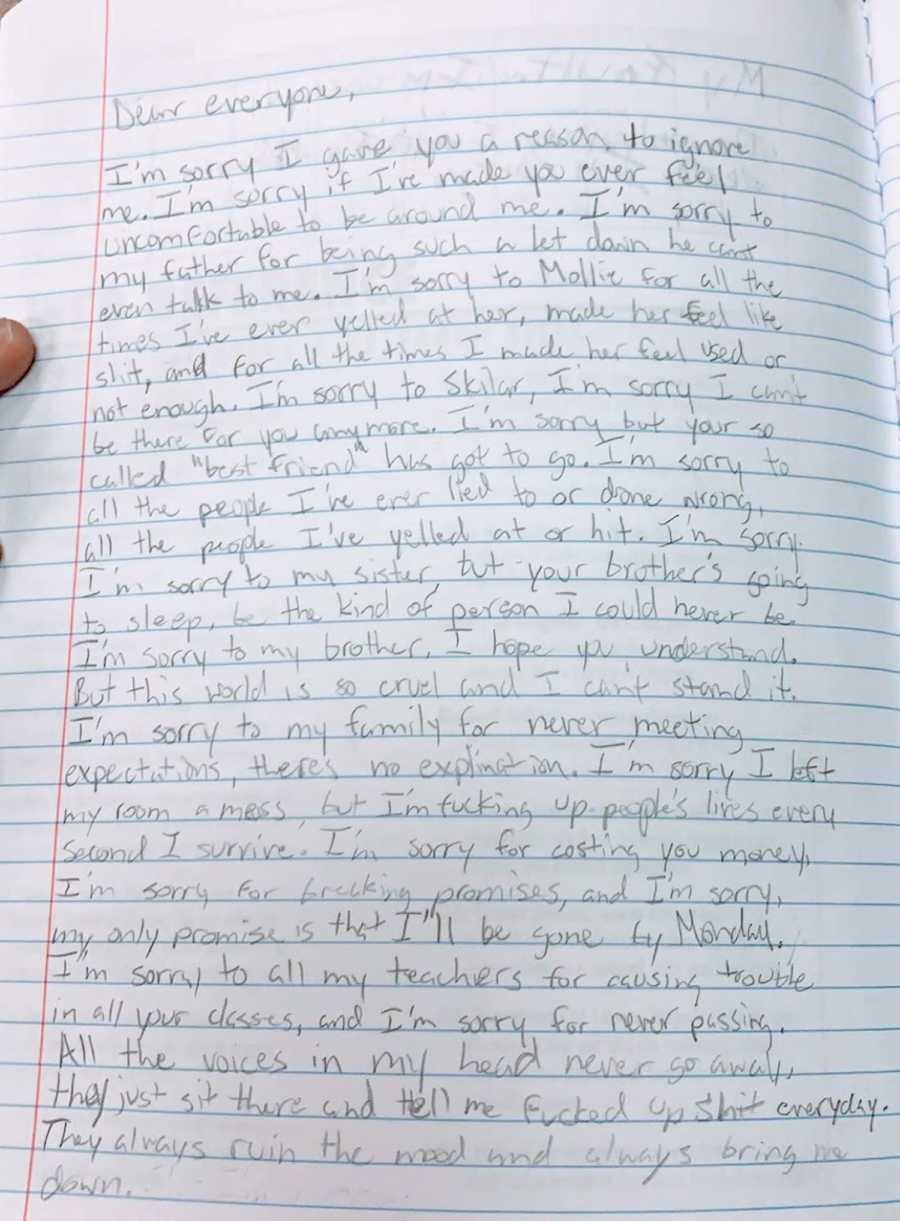 Dear everyone,
I'm sorry I gave you a reason to ignore
me. I'm sorry if I've made you ever feel
uncomfortable to be around me. I'm sorry to
my father for being such a let down he can't
even talk to me. I'm sorry to Mollie for all the
times I've ever yelled at her, made her feel like
shit, and for all the times I made her feel used or
not enough. I'm sorry to Skilar, I'm sorry I can't
be there for you anymore. I'm sorry but your so
called "best friend" has got to go. I'm sorry to
all the people I've ever lied to or done wrong,
all the people I've yelled at or hit. I'm sorry.
I'm sorry to my sister, but your brother's going
to sleep, be the kind of person I could never be
I'm sorry to my brother, I hope you understand.
But this world is so cruel and I can't stand it.
I'm sorry to my family for never meeting
expectations, theres no explination. I'm sorry I left
my room a mess, but I'm fucking up people's lives every
second I survive. I'm sorry for costing you money,
I'm sorry for breaking promises, and I'm sorry,
my only promise is that I'll be gone by Monday.
I'm sorry to all my teachers for causing trouble
in all your classes, and I'm sorry for never passing.
All the voices in my head never go away,
they just sit there and tell me fucked up shit everyday.
They always ruin the mood and always bring me
down.